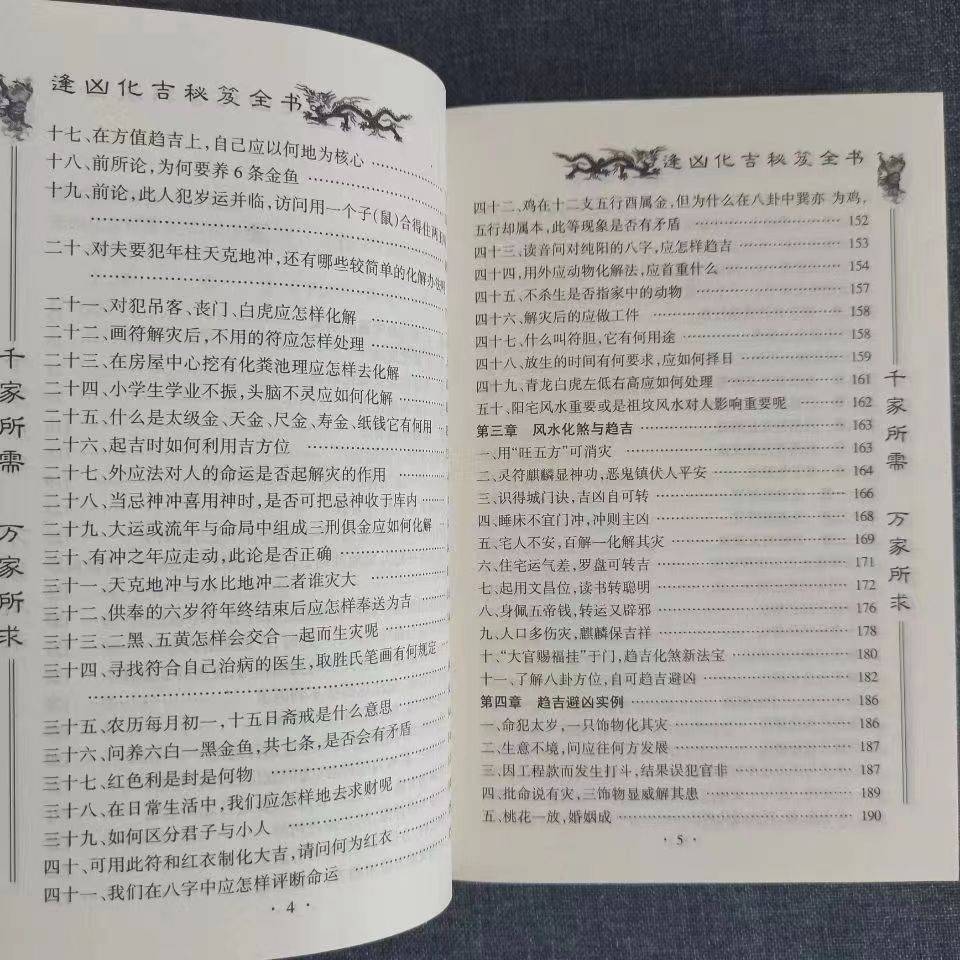 逢凶化吉秘笈全书
十七、在方值趋吉上,自己应以何地为核心
十八、前所论,为何要养6条金鱼
十九、前论,此人犯岁运并临,访问用一个子(鼠)合得住
二十、对夫要犯年柱天克地冲,还有哪些较简单的化解办法
二十一、对犯吊客、丧门、白虎应怎样化解
二十二、画符解灾后,不用的符应怎样处理
二十三、在房屋中心挖有化粪池理应怎样去化解
二十四、小学生学业不振,头脑不灵应如何化解
二十五、什么是太级金、天金、尺金、寿金、纸钱它有何用
二十六、起吉时如何利用吉方位
二十七、外应法对人的命运是否起解灾的作用
二十八、当忌神冲喜用神时,是否可把忌神收于库内
二十九、大运或流年与命局中组成三刑俱金应如何化解
三十、有冲之年应走动,此论是否正确
三十一、天克地冲与水比地冲二者谁灾大
三十二、供奉的六岁符年终结束后应怎样奉送为吉
三十三、二黑、五黄怎样会交合一起而生灾呢
三十四、寻找符合自己治病的医生,取胜氏笔画有何规定
三十五、农历每月初一,十五日斋戒是什么意思
三十六、问养六白一黑金鱼,共七条,是否会有矛盾
三十七、红色利是封是何物
三十八、在日常生活中,我们应怎样地去求财呢
三十九、如何区分君子与小人
四十、可用此符和红衣制化大吉,请问何为红衣
四十一、我们在八字中应怎样评断命运
·4·
千家所需 万家所求
逢凶化吉秘笈全书
四十二、鸡在十二支五行酉属金,但为什么在八卦中巽亦 为鸡,
五行却属本,此等现象是否有矛盾 152
四十三、读音问对纯阳的八字,应怎样趋吉 153
四十四,用外应动物化解法,应首重什么 154
四十五、不杀生是否指家中的动物 157
四十六、解灾后的应做工件 158
四十七、什么叫符胆,它有何用途 158
四十八、放生的时间有何要求,应如何择日 159
四十九、青龙白虎左低右高应如何处理 161
五十、阳宅风水重要或是祖坟风水对人影响重要呢 162
第三章 风水化煞与趋吉 163
一、用“旺五方”可消灾 163
二、灵符麒麟显神功,恶鬼镇伏人平安 164
三、识得城门诀,吉凶自可转 166
四、睡床不宜门冲,冲则主凶 168
五、宅人不安,百解一化解其灾 169
六、住宅运气差,罗盘可转吉 171
七、起用文昌位,读书转聪明 172
八、身佩五帝钱,转运又辟邪 176
九、人口多伤灾,麒麟保吉祥 178
十、“大官赐福挂”于门,趋吉化煞新法宝 180
十一、了解八卦方位,自可趋吉避凶 182
第四章 趋吉避凶实例 186
一、命犯太岁,一只饰物化其灾 186
二、生意不境,问应往何方发展 187
三、因工程款而发生打斗,结果误犯官非 187
四、批命说有灾,三饰物显威解其患 189
五、桃花一放,婚姻成 190
·5·
千家所需 万家所求